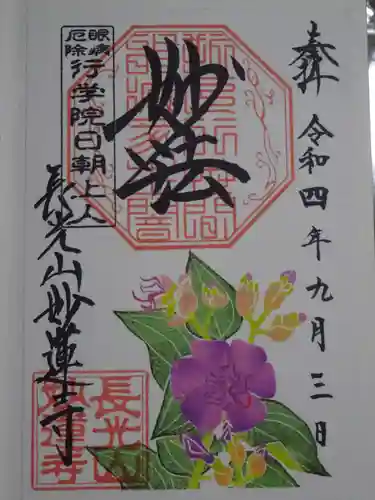 奉拝 令和四年九月三日
妙法
眼病
厄除
行学院日朝上人
長光山妙蓮寺
長光山
妙蓮寺